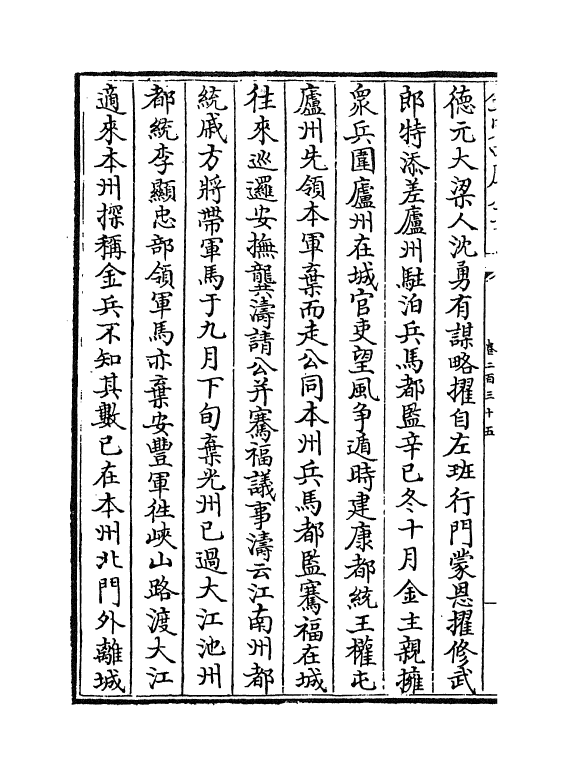 卷二百三十五
德元大梁人沈勇有謀略擢自左班行門蒙恩擢修武
郎特添差廬州駐泊兵馬都監辛巳冬十月金主親擁
衆兵圍廬州在城官吏望風爭遁時建康都統王權屯
廬州先領本軍棄而走公同本州兵馬都監騫福在城
往來巡邏安撫龔濤請公并騫福議事濤云江南州都
統戚方將帶軍馬于九月下旬棄光州已過大江池州
都統李顯忠部領軍馬亦棄安豐軍徃峽山路渡大江
適來本州探稱金兵不知其數已在本州北門外離城